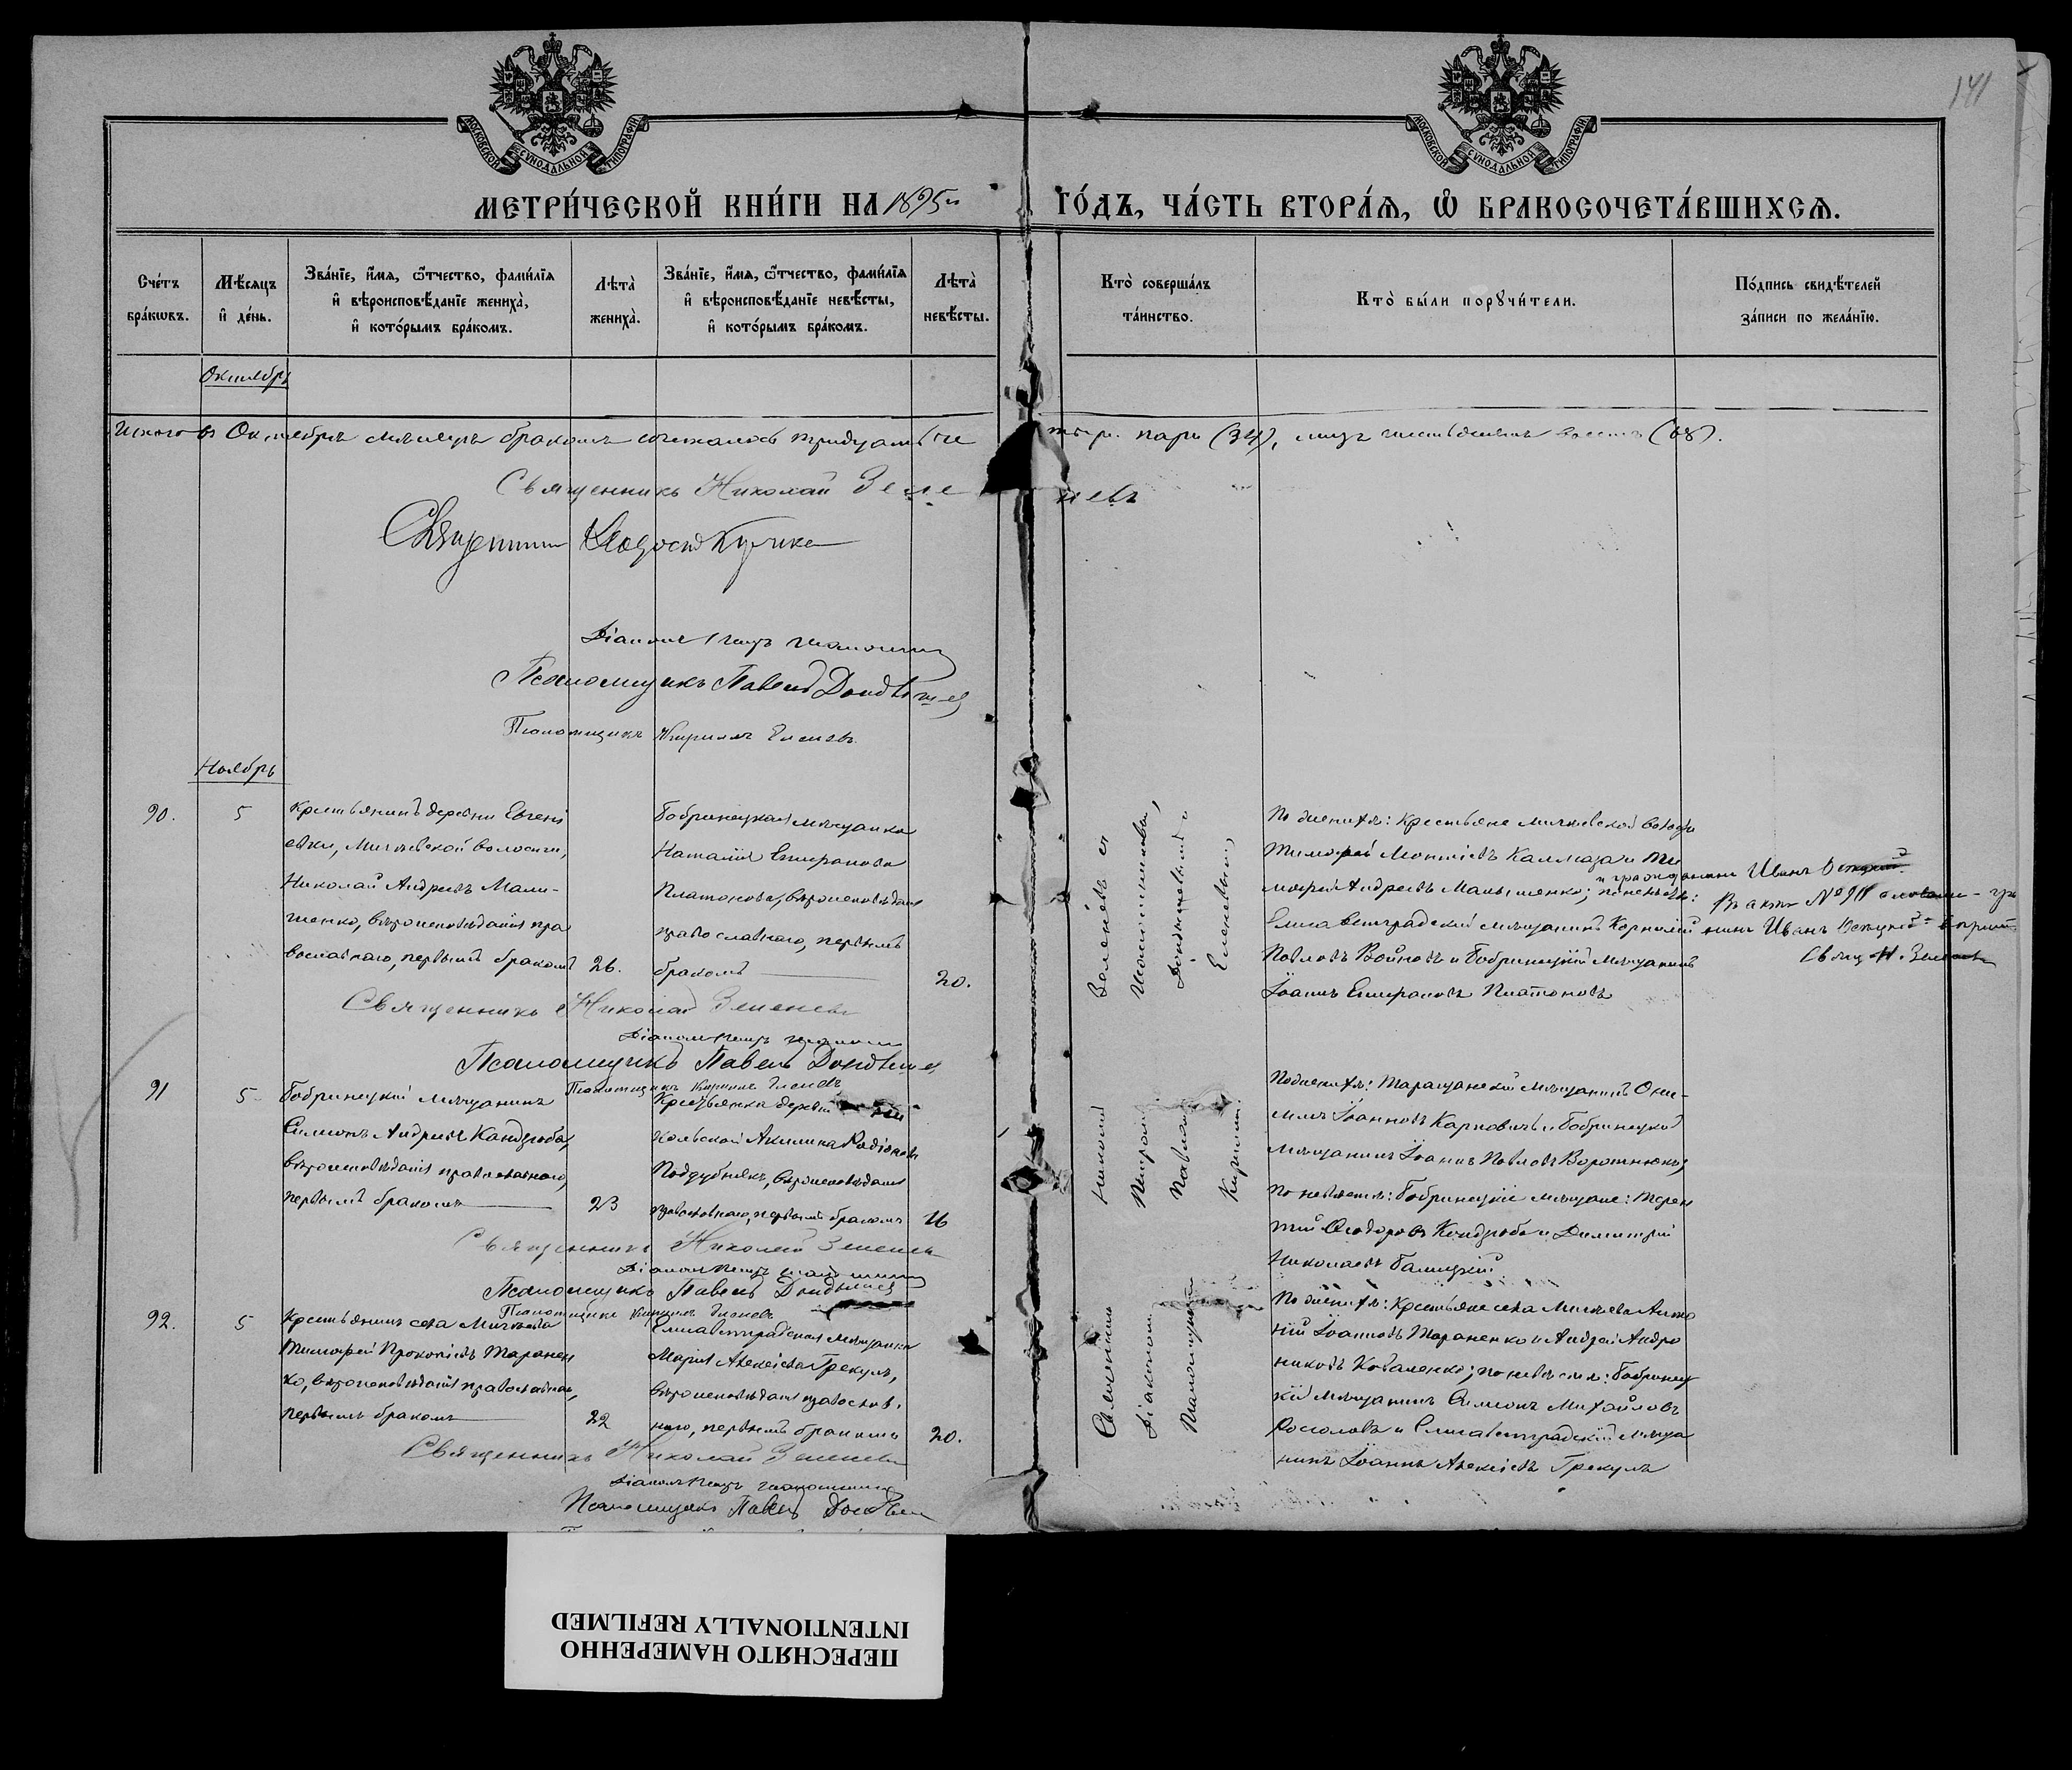 141
МОСКОВСКОЙ СУНОДАЛЬНОЙ ТИПОГРАФІИ
МОСКОВСКОЙ СУНОДАЛЬНОЙ ТИПОГРАФІИ
МЕТРИ́ЧЕСКОЙ КНИ́ГИ НА 1895й ГО́ДЪ, ЧА́СТЬ ВТОРА́Ѧ, Ѽ БРАКОСОЧЕТА́ВШИХСѦ.
Сче́тъ бра́кѡвъ.
Мѣ́сяцъ и҆ де́нь.
Зва́нїе, и҆́мѧ, ѻ҆́тчество, фамі́лїѧ и҆ вѣроисповѣ́данїе жениха̀, и҆ кото́рымъ бра́комъ.
Лѣта̀ жениха̀.
Зва́нїе, и҆́мѧ, ѻ҆́тчество, фамі́лїѧ и҆ вѣроисповѣ́данїе невѣ́сты, и҆ кото́рымъ бра́комъ.
Лѣта̀ невѣ́сты.
Кто̀ соверша́лъ та́инство.
Кто̀ бы́ли порꙋчи́тели.
По́дпись свидѣ́телей за́писи по жела́нїю.
Октябрь
Итого въ Октябрѣ мѣсяцѣ бракомъ сочеталось тридцать че тыре пары (34), лицъ шестьдесятъ восемь (68).
Священникъ Николай Зеле невъ
Священникъ
Діаконъ Петръ
Псаломщикъ Павелъ
Псаломщикъ Кириллъ Еленевъ
Ноябрь
90.
5
Крестьянинъ деревни Евгені
евки, Мигѣевской волости,
Николай Андреевъ Малы-
шенко, вѣроисповѣданія пра
вославнаго, первымъ бракомъ
26.
Бобринецкая мѣщанка
Наталія Епифанова
Платонова, вѣроисповѣданія
православнаго, первымъ
бракомъ
20.
По женихѣ: Крестьяне Мигѣевской волости
Тимофей
мофей Андреевъ Малышенко; по невѣстѣ:
Елисаветградскій мѣщанинъ Корнилій
Павловъ Войновъ и Бобринецкій мѣщанинъ
Іоаннъ Епифановъ Платоновъ
и гражданинъ Иванъ
Въ актѣ №90 словами - гр
Иванъ
Свящ. Н. Зеленевъ
Священникъ Николай Зеленевъ
Діаконъ Петръ
Псаломщикъ Павелъ
Псаломщикъ Кириллъ Еленевъ
91
5
Бобринецкій мѣщанинъ
Симеонъ Андреевъ Кандзюба,
вѣроисповѣданія православнаго,
первымъ бракомъ
23
Крестьянка деревни
Акилина Родіонова
Поддубнякъ, вѣроисповѣданія
православнаго, первымъ бракомъ
Николай
Петромъ
Павломъ
Кирилломъ.
По женихѣ: Таращанскій мѣщанинъ Они-
симъ Іоанновъ Карповичъ и Бобринецкій
мѣщанинъ Іоаннъ Павловъ Воротнюкъ;
по невѣстѣ: Бобринецкіе мѣщане: Терен
тій Ѳеодоровъ Кандзюба и Димитрій
Николаевъ Балицкій
Священникъ Николай Зеленевъ
Діаконъ Петръ
Псаломщикъ Павелъ
Псаломщикъ Кириллъ Еленевъ
92.
5
Крестьянинъ села Мигѣева
Тимофей Прокопіевъ Таранен
ко, вѣроисповѣданія православнаго,
первымъ бракомъ
22
Елисаветградская мѣщанка
Марія Алексіева Грекулъ,
вѣроисповѣданія православ-
наго, первымъ бракомъ
20.
Священникъ
Діаконъ
Псаломщикъ
По женихѣ: Крестьяне села Мигѣева Анто
ній Іоанновъ Тараненко и Андрей Андро
никовъ Коваленко; по невѣстѣ: Бобринец
кій мѣщанинъ Симеонъ Михайловъ
Росоловъ и Елисаветградскій мѣща
нинъ Іоаннъ Алексіевъ Грекулъ
Священникъ Николай Зеленевъ
Діаконъ Петръ
Псаломщикъ Павелъ
ПЕРЕСНЯТО НАМЕРЕННО
INTENTIONALLY REFILMED